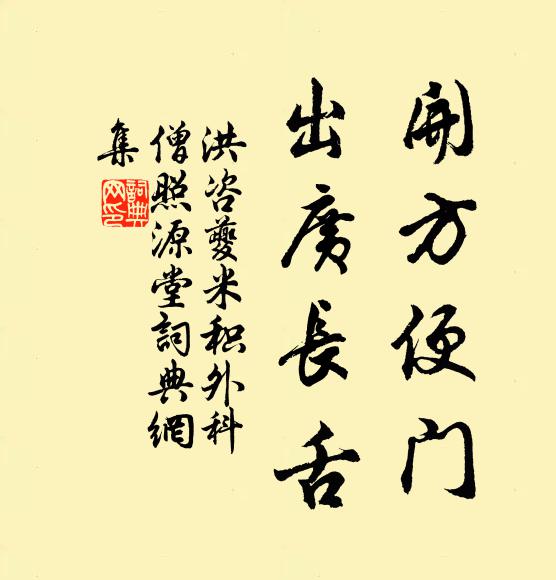 開方便门
出廣長舌
洪咨夔米积外科
僧照源堂詞典網
集
詞典网印